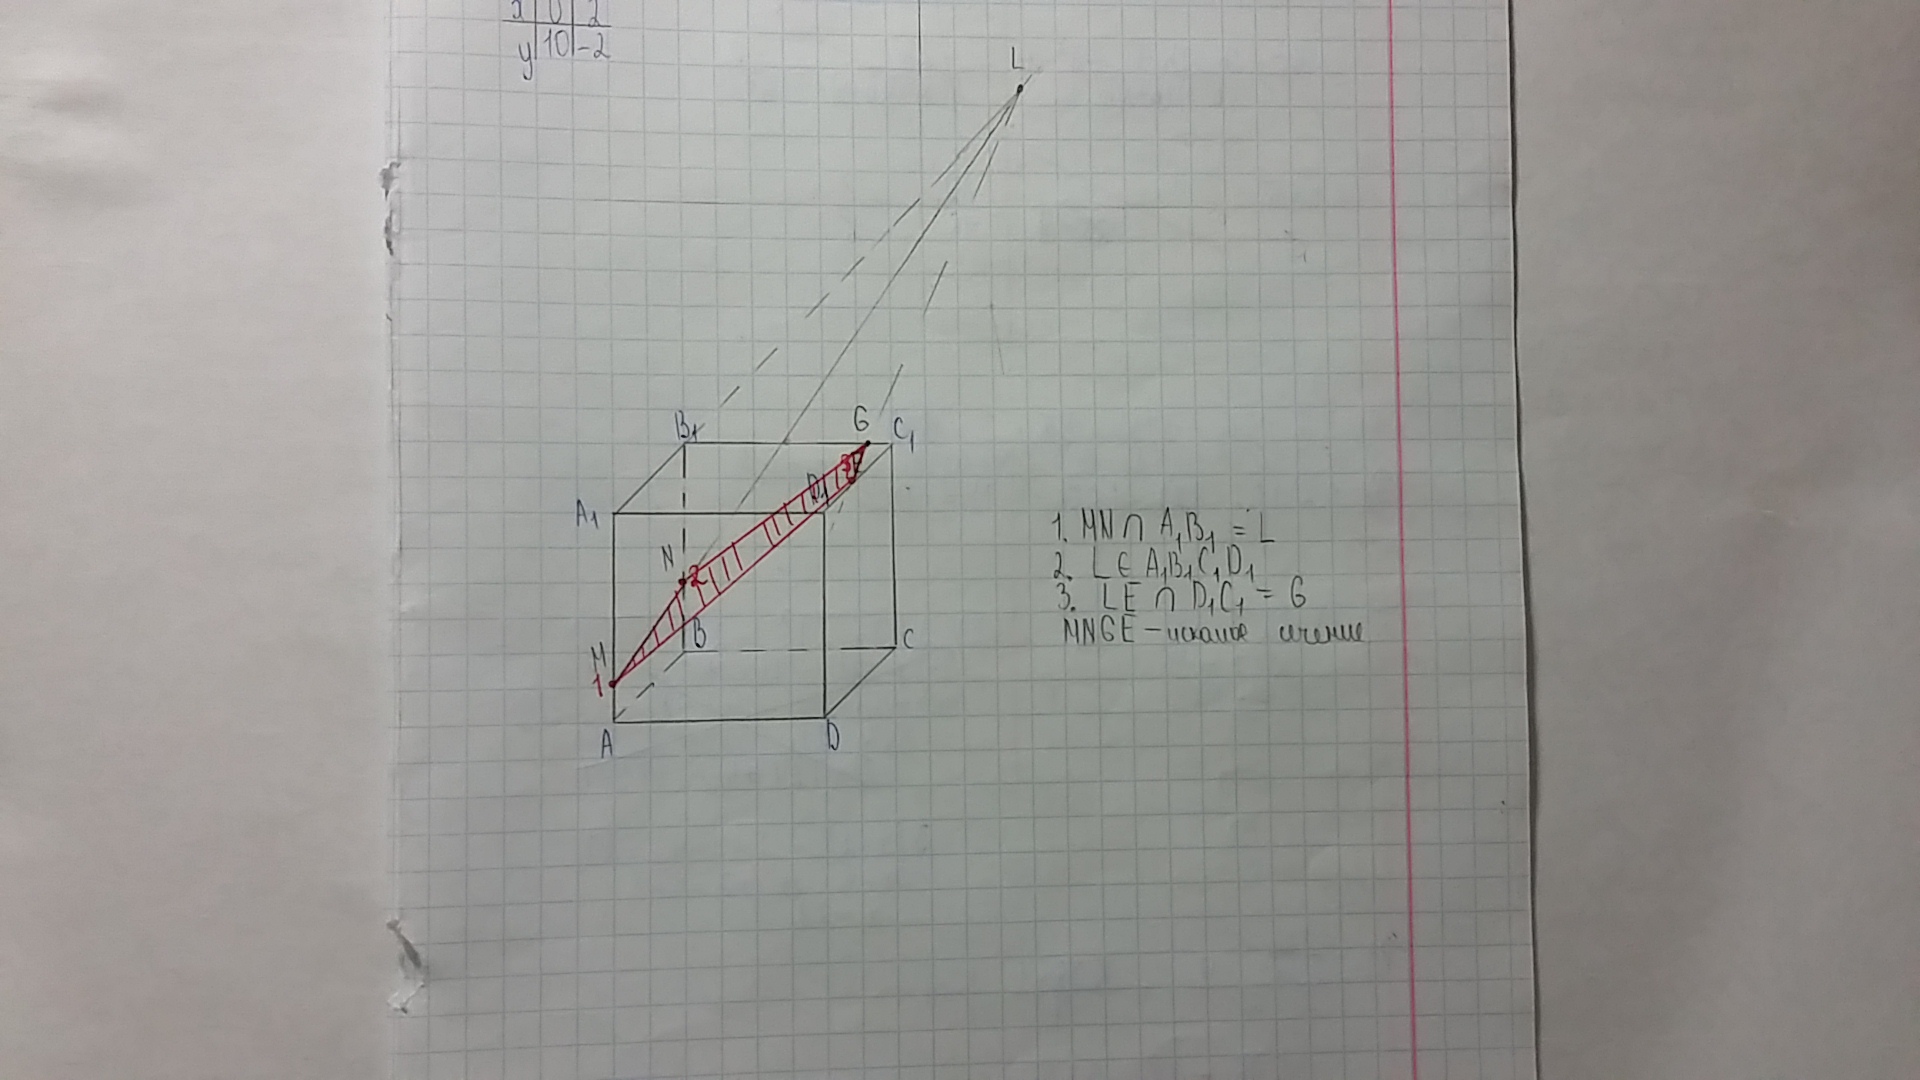 x 0 2
y 10 -2
L
B₁ G C₁
A₁ D₁ 3 E
N 2
M B C
1
A D
1. MN ∩ A₁B₁ = L
2. L ∈ A₁B₁C₁D₁
3. LE ∩ D₁C₁ = G
MNGE – искомое сечение